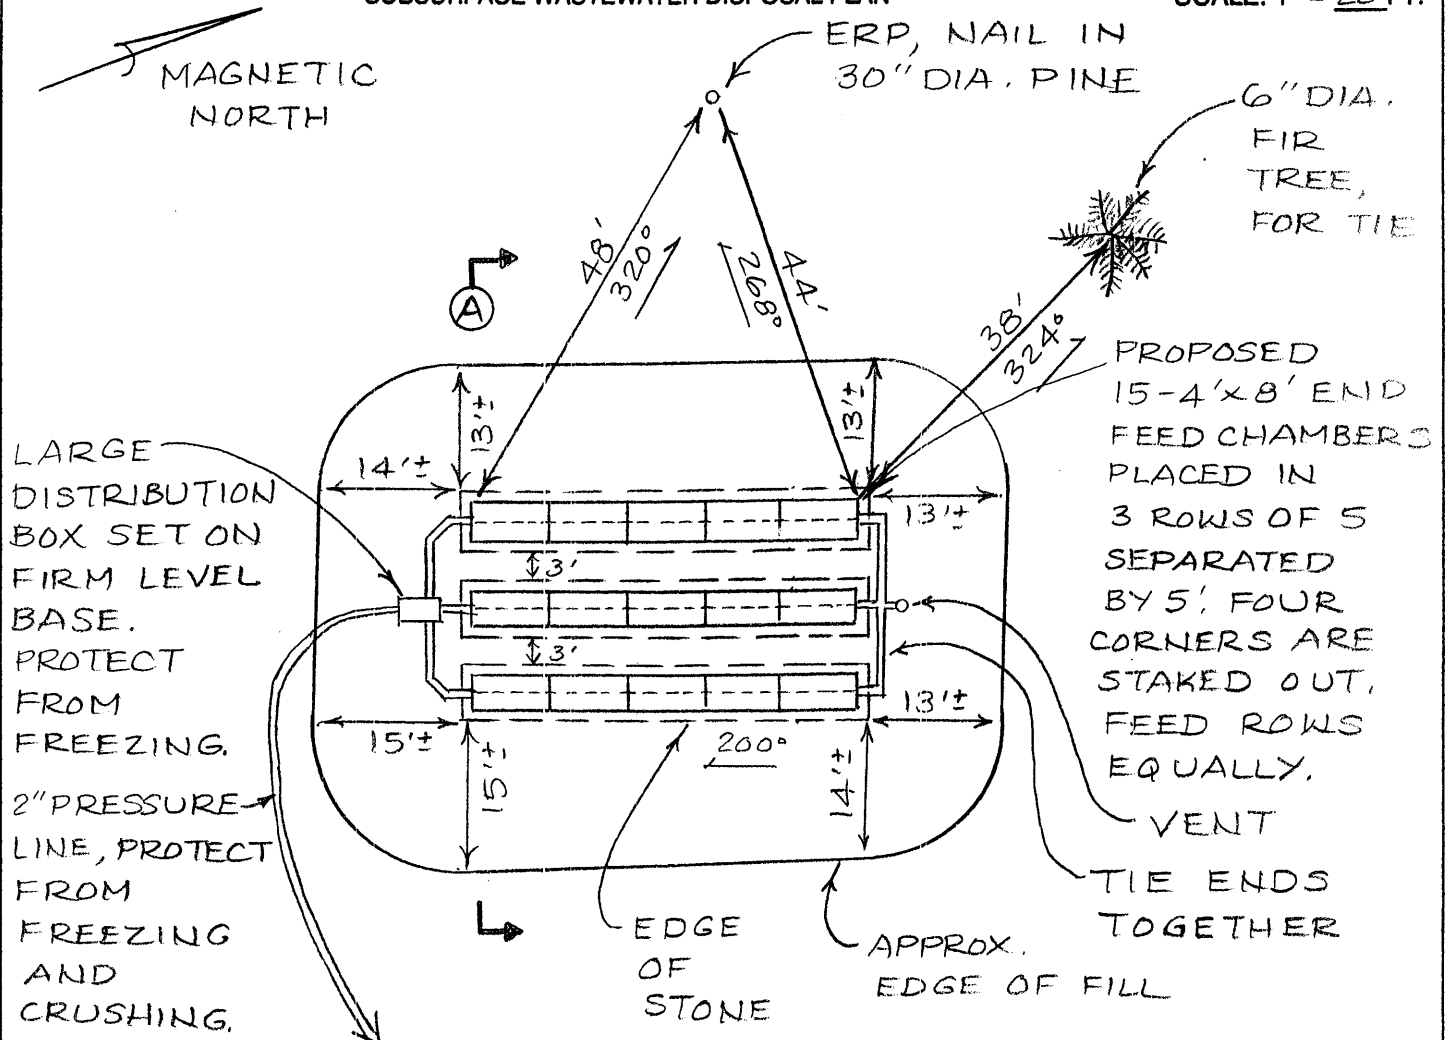 SUBSURFACE WASTEWATER DISPOSAL PLAN
SCALE: 1" = 20 FT.
MAGNETIC
NORTH
ERP, NAIL IN
30" DIA. PINE
6" DIA.
FIR
TREE,
FOR TIE
48'
320°
268°
44'
38'
324°
A
PROPOSED
15-4'x8' END
FEED CHAMBERS
PLACED IN
3 ROWS OF 5
SEPARATED
BY 5'. FOUR
CORNERS ARE
STAKED OUT.
FEED ROWS
EQUALLY.
LARGE
DISTRIBUTION
BOX SET ON
FIRM LEVEL
BASE.
PROTECT
FROM
FREEZING.
13'±
13'±
14'±
13'±
3'
3'
15'±
13'±
200°
15'±
14'±
2" PRESSURE
LINE, PROTECT
FROM
FREEZING
AND
CRUSHING.
VENT
TIE ENDS
TOGETHER
EDGE
OF
STONE
APPROX.
EDGE OF FILL